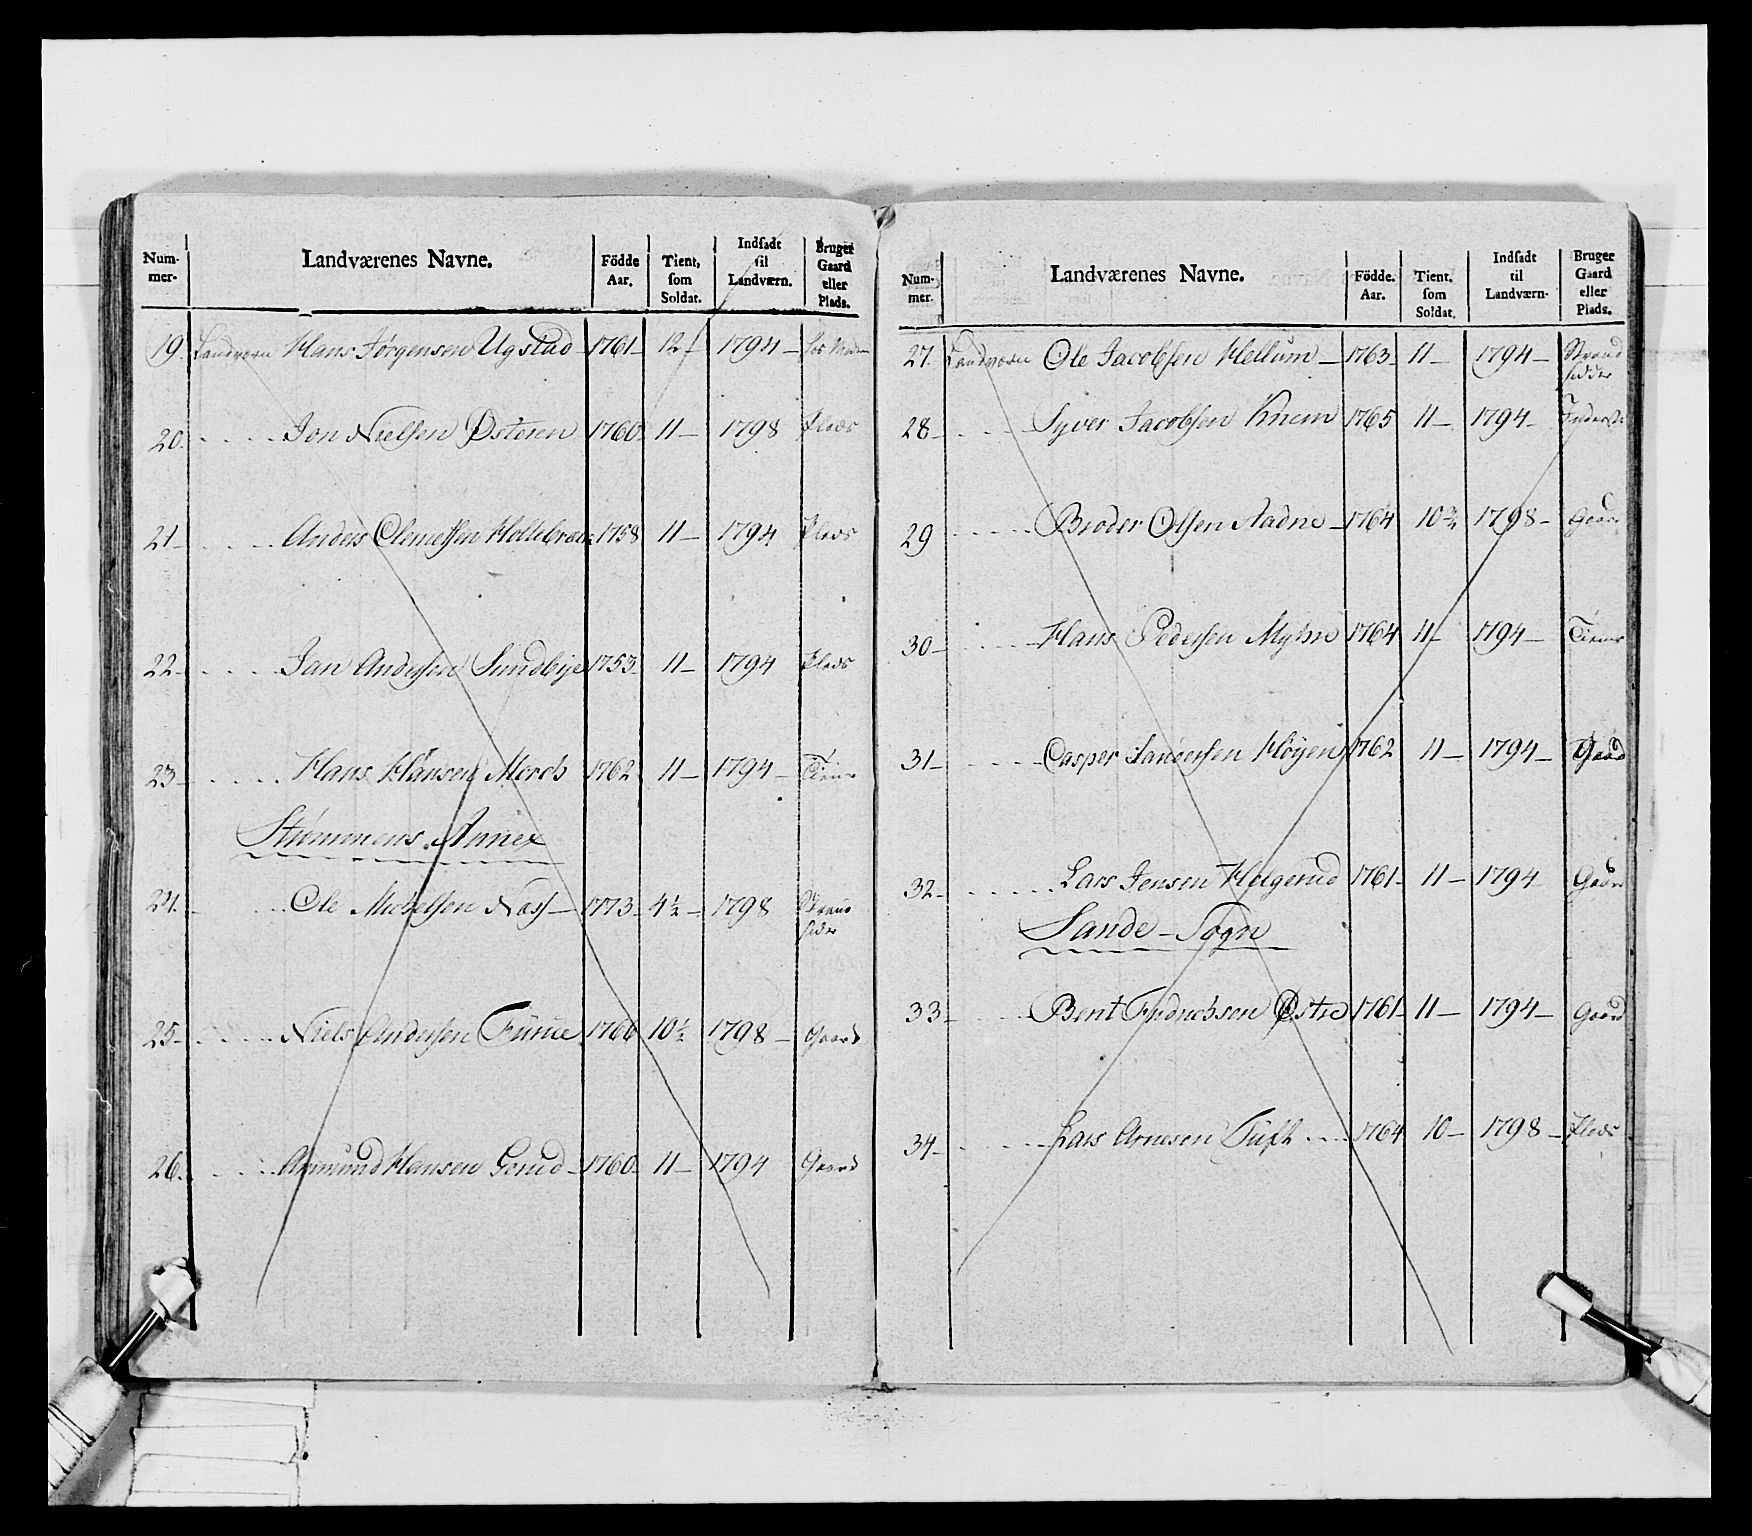 Num-
mer-
Landværenes Navne.
Födde
Aar.
Tient,
som
Soldat.
Indsadt
til
Landværn.
Bruger
Gaard
eller
Plads.
19. Landværn Hans Jörgensen Ugstad - 1761 - 12 - 1794 - hos
20. Jon Nielsen Østeren 1760 11 - 1798 Plads
21 - Anders Clemetsen 1758 11 - 1794 Plads
22 - Jan Andersen Sundbye 1753 11 - 1794 Plads
23 - Hans Hansen Morch 1762 11 - 1794 - Tiener
Strømmens Annex
24. Ole Michelsen Næs - 1773 - 4 1/2 - 1798 Strand
sider
25 - Niels Andersen Furue 1766 10 1/2 1798 - Gaard
26. Amund Hansen Gorud - 1760 11 - 1794 Gaard
Num-
mer.
Landværenes Navne.
Födde.
Aar.
Tient.
som
Soldat.
Indsadt
til
Landværn-
Bruger
Gaard
eller
Plads.
27. Landværn Ole Jacobsen Hellum - 1763 11 - 1794 - Strand
sidder
28 - Syver Jacobsen Knem 1765 11 - 1794 -
29 Broder Olsen Aadne - 1764 10 3/4 1798 - Gaard
30 - Hans Pedersen Myhre 1764 11 - 1794 - Tiener
31 - Casper Handersen Höyen 1762 11 - 1794 - Gaard
32 - Lars Jensen Helgerud 1761 - 11 - 1794 Gaard
Sande - Sogn
33 - Bent Fridrichsen Østre 1761 - 11 - 1794 - Gaard
34 - Lars Arnesen Tuft 1764 10 - 1798 - Plads